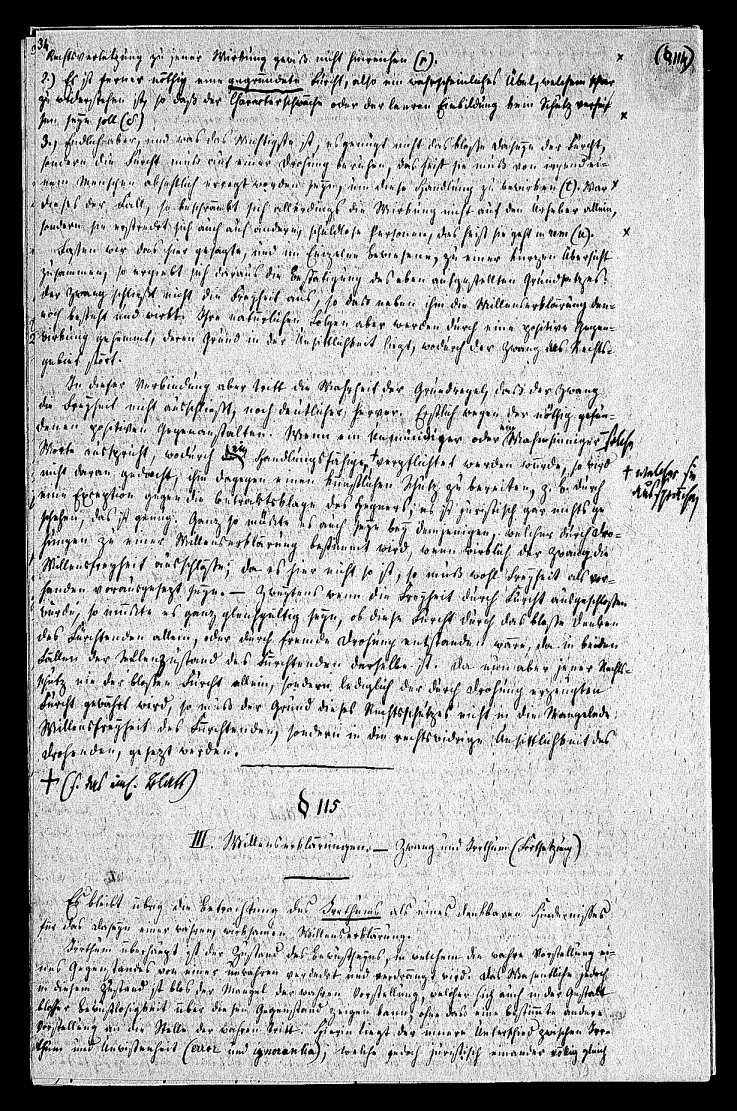 34
Rechtsverletzung zu jener Wirkung gewiß nicht hinreichen (r). ×
(§ 114)
2.) Es ist ferner nöthig eine gegründete Furcht, also ein wahrscheinliches Übel, welchem schwer
zu widerstehen ist, so daß der Charakterschwache oder der leeren Einbildung kein Schutz verhei-
sen seyn soll (s) ×
3.) Endlich aber, und was das Wichtigste ist, es genügt nicht das bloße Daseyn der Furcht,
sondern die Furcht muß auf einer Drohung beruhen, das heißt sie muß von irgend ei-
nem Menschen absichtlich erregt worden seyn, um diese Handlung zu bewirken (t). War ×
dieses der Fall, so beschränkt sich allerdings die Wirkung nicht auf den Urheber allein,
sondern sie erstreckt sich auch auf andere, schuldlose Personen, das heißt sie geht in rem (u). ×
Fassen wir das hier gesagte, und im Einzelnen bewiesene, zu einer kurzen Übersicht
zusammen, so ergiebt sich daraus die Bestätigung des oben aufgestellten Grundsatzes:
der Zwang schließt nicht die Freyheit aus, so daß neben ihm die Willenserklärung den-
noch besteht und wirkt. Ihre natürlichen Folgen aber werden durch eine positive Gegen-
wirkung gehemmt, deren Grund in der Unsittlichkeit liegt, wodurch der Zwang das Rechts-
gebiet stört.
In dieser Verbindung aber tritt die Wahrheit der Grundregel, daß der Zwang
die Freyheit nicht ausschließt, noch deutlicher hervor. Erstlich wegen der nöthig gefun-
denen positiven Gegenanstalten. Wenn ein Unmündiger oder ein Wahnsinniger solche
Worte ausspricht, wodurch Handlungsfähige, + verpflichtet werden würde, so wird
+ welcher sie
ausspräche,
nicht daran gedacht, ihm dagegen einen künstlichen Schutz zu bereiten, z. B. durch
eine Exception gegen die Contractsklage des Gegners; es ist juristisch gar nichts ge
schehen, das ist genug. Ganz so müßte es auch seyn bey demjenigen, welcher durch Dro-
hungen zu einer Willenserklärung bestimmt wird, wenn wirklich der Zwang die
Willensfreyheit ausschlösse; da es hier nicht so ist, so muß wohl Freyheit als vor-
handen vorausgesetzt seyn. — Zweytens wenn die Freyheit durch Furcht ausgeschlossen
würde, so müßte es ganz gleichgültig seyn, ob diese Furcht durch das bloße Denken
des Fürchtenden allein, oder durch fremde Drohung entstanden wäre, da in beiden
Fällen der Seelenzustand des Fürchtenden derselbe ist. Da nun aber jener Rechts-
schutz nie der bloßen Furcht allein, sondern lediglich der durch Drohung erzeugten
Furcht gewährt wird, so muß der Grund dieses Rechtsschutzes nicht in die mangelnde
Willensfreyheit des Fürchtenden, sondern in die rechtswidrige Unsittlichkeit des
Drohenden, gesetzt werden.
+ (s. das Blatt)
§ 115
III. Willenserklärungen. — Zwang und Irrthum (Fortsetzung)
Es bleibt übrig die Betrachtung des Irrthums als eines denkbaren Hindernisses
für das Daseyn einer wahren, wirksamen Willenserklärung.
Irrthum überhaupt ist der Zustand des Bewustseyns, in welchem die wahre Vorstellung ei-
nes Gegenstandes von einer unwahren verdeckt und verdrängt wird. Das Wesentliche jedoch
in diesem Zustand ist blos der Mangel der wahren Vorstellung, welcher sich auch in der Gestalt
bloßer Bewustlosigkeit über diesen Gegenstand zeigen kann, ohne daß eine bestimmte andere
Vorstellung an die Stelle der wahren tritt. Hierin liegt der innere Unterschied zwischen Irr-
thum und Unwissenheit (error und ignorantia), welche jedoch juristisch einander völlig gleich